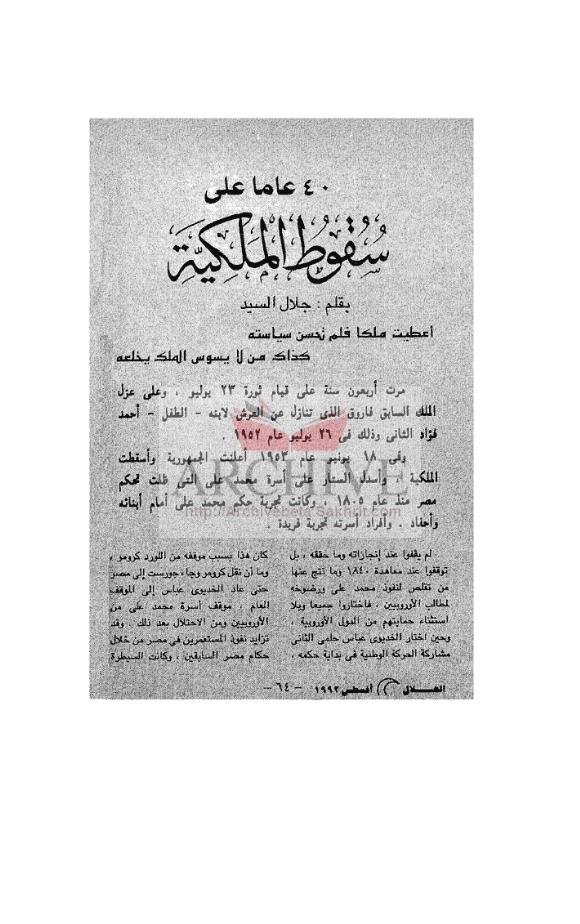 ٤٠ عاما على
سُقُوطِ المَلَكِيَّة
بقلم : جلال السيد
اعطيت ملكا فلم تُحسن سياسته
كذاك من لا يسوس الملك يخلعه
مرت أربعون سنة على قيام ثورة ٢٣ يوليو ، وعلى عزل
الملك السابق فاروق الذى تنازل عن العرش لابنه - الطفل - أحمد
فؤاد الثانى وذلك فى ٢٦ يوليو عام ١٩٥٢ .
وفى ١٨ يونيو عام ١٩٥٣ أعلنت الجمهورية وأسقطت
الملكية ، وأسدل الستار على أسرة محمد على التى ظلت تحكم
مصر منذ عام ١٨٠٥ ، وكانت تجربة حكم محمد على أمام أبنائه
وأحفاد . وأفراد أسرته تجربة فريدة .
ARCHIVE
http://Archivebeta.Sakhrit.com
لم يقفوا عند إنجازاته وما حققه ، بل
توقفوا عند معاهدة ١٨٤٠ وما نتج عنها
من تقلص لنفوذ محمد على ورضوخه
لمطالب الأوروبيين . فاختاروا جميعا وبلا
استثناء حمايتهم من الدول الأوروبية ،
وحين اختار الخديوى عباس حلمى الثانى
مشاركة الحركة الوطنية فى بداية حكمه ،
كان هذا بسبب موقفه من اللورد كرومر ،
وما أن نقل كرومر وجاء جورست إلى مصر
حتى عاد الخديوى عباس إلى الموقف
العام ، موقف أسرة محمد على من
الأوروبيين ومن الاحتلال بعد ذلك . وقد
تزايد نفوذ المستعمرين فى مصر من خلال
حكام مصر السابقين ، وكانت السيطرة
الهلال أغسطس ١٩٩٢ - ٦٤ -